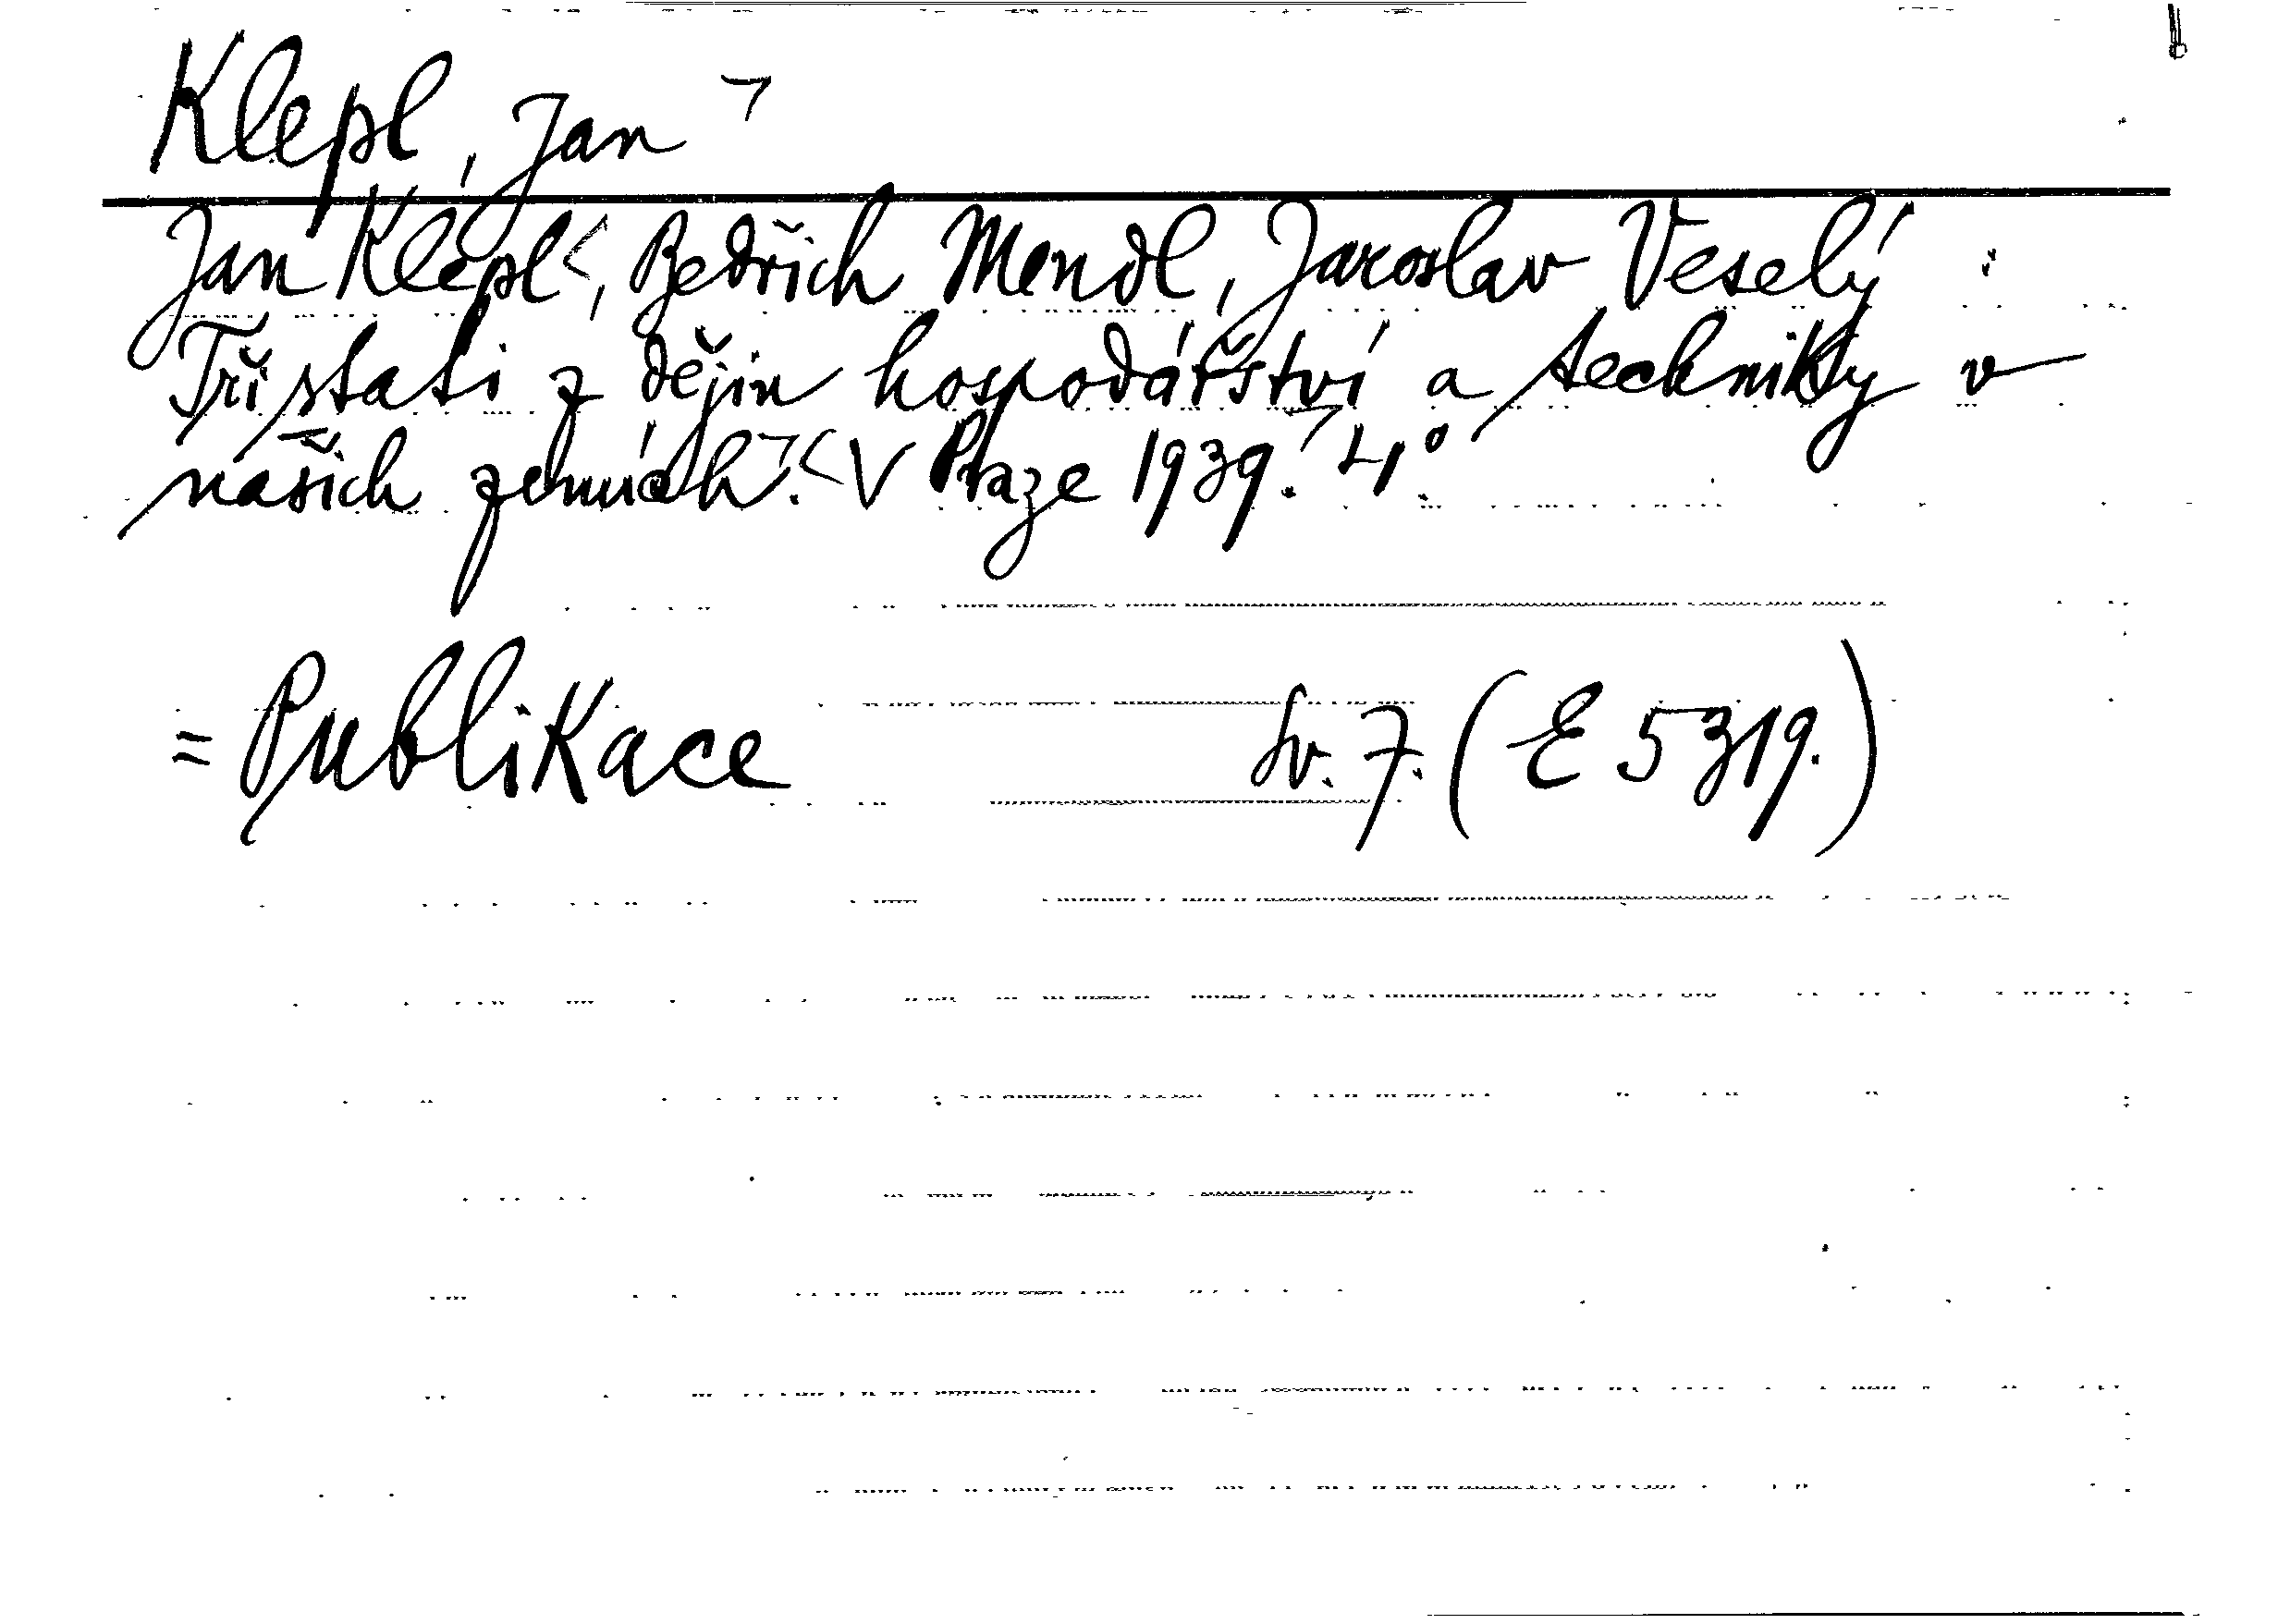 Klepl, Jan
Jan Klepl, Bedřich Mendl, Jaroslav Veselý :
Tři stati z dějin hospodářství a techniky v
našich zemích. V Praze 1939. 4°.
= Publikace sv. 7. (E 5319.)